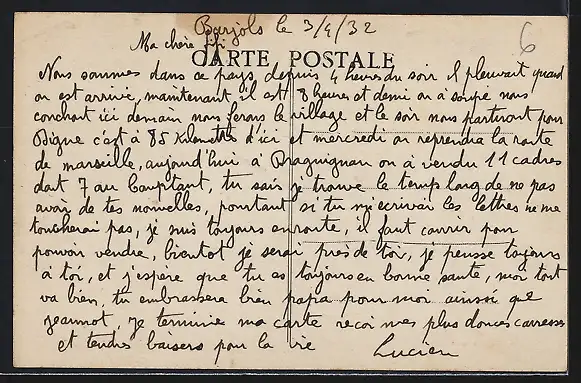 Barjols le 3/4/32
6
Ma chère fifi
CARTE POSTALE
Nous sommes dans ce pays depuis 4 heures du soir il pleuvait quand
on est arrivé, maintenant il est 8 heures et demi on a soupé nous
couchons ici demain nous ferons le village et le soir nous partiront pour
Digne c'est à 85 Kilometres d'ici et mercredi on reprendra la route
de marseille, aujourd'hui à Draguignan on à vendu 11 cadres
dont 7 au Comptant, tu sais je trouve le temps long de ne pas
avoir de tes nouvelles, pourtant si tu m'ecrivais les lettres ne me
toucherai pas, je suis toujours en route, il faut courrir pour
pouvoir vendre, bientot je serai près de toi, je pensse toujours
à toi, et j'espère que tu es toujours en bonne santé, moi tout
va bien, tu embrassera bien papa pour moi ainssi que
jeannot, je termine ma carte recoi mes plus douces carresses
et tendres baisers pour la vie
Lucien